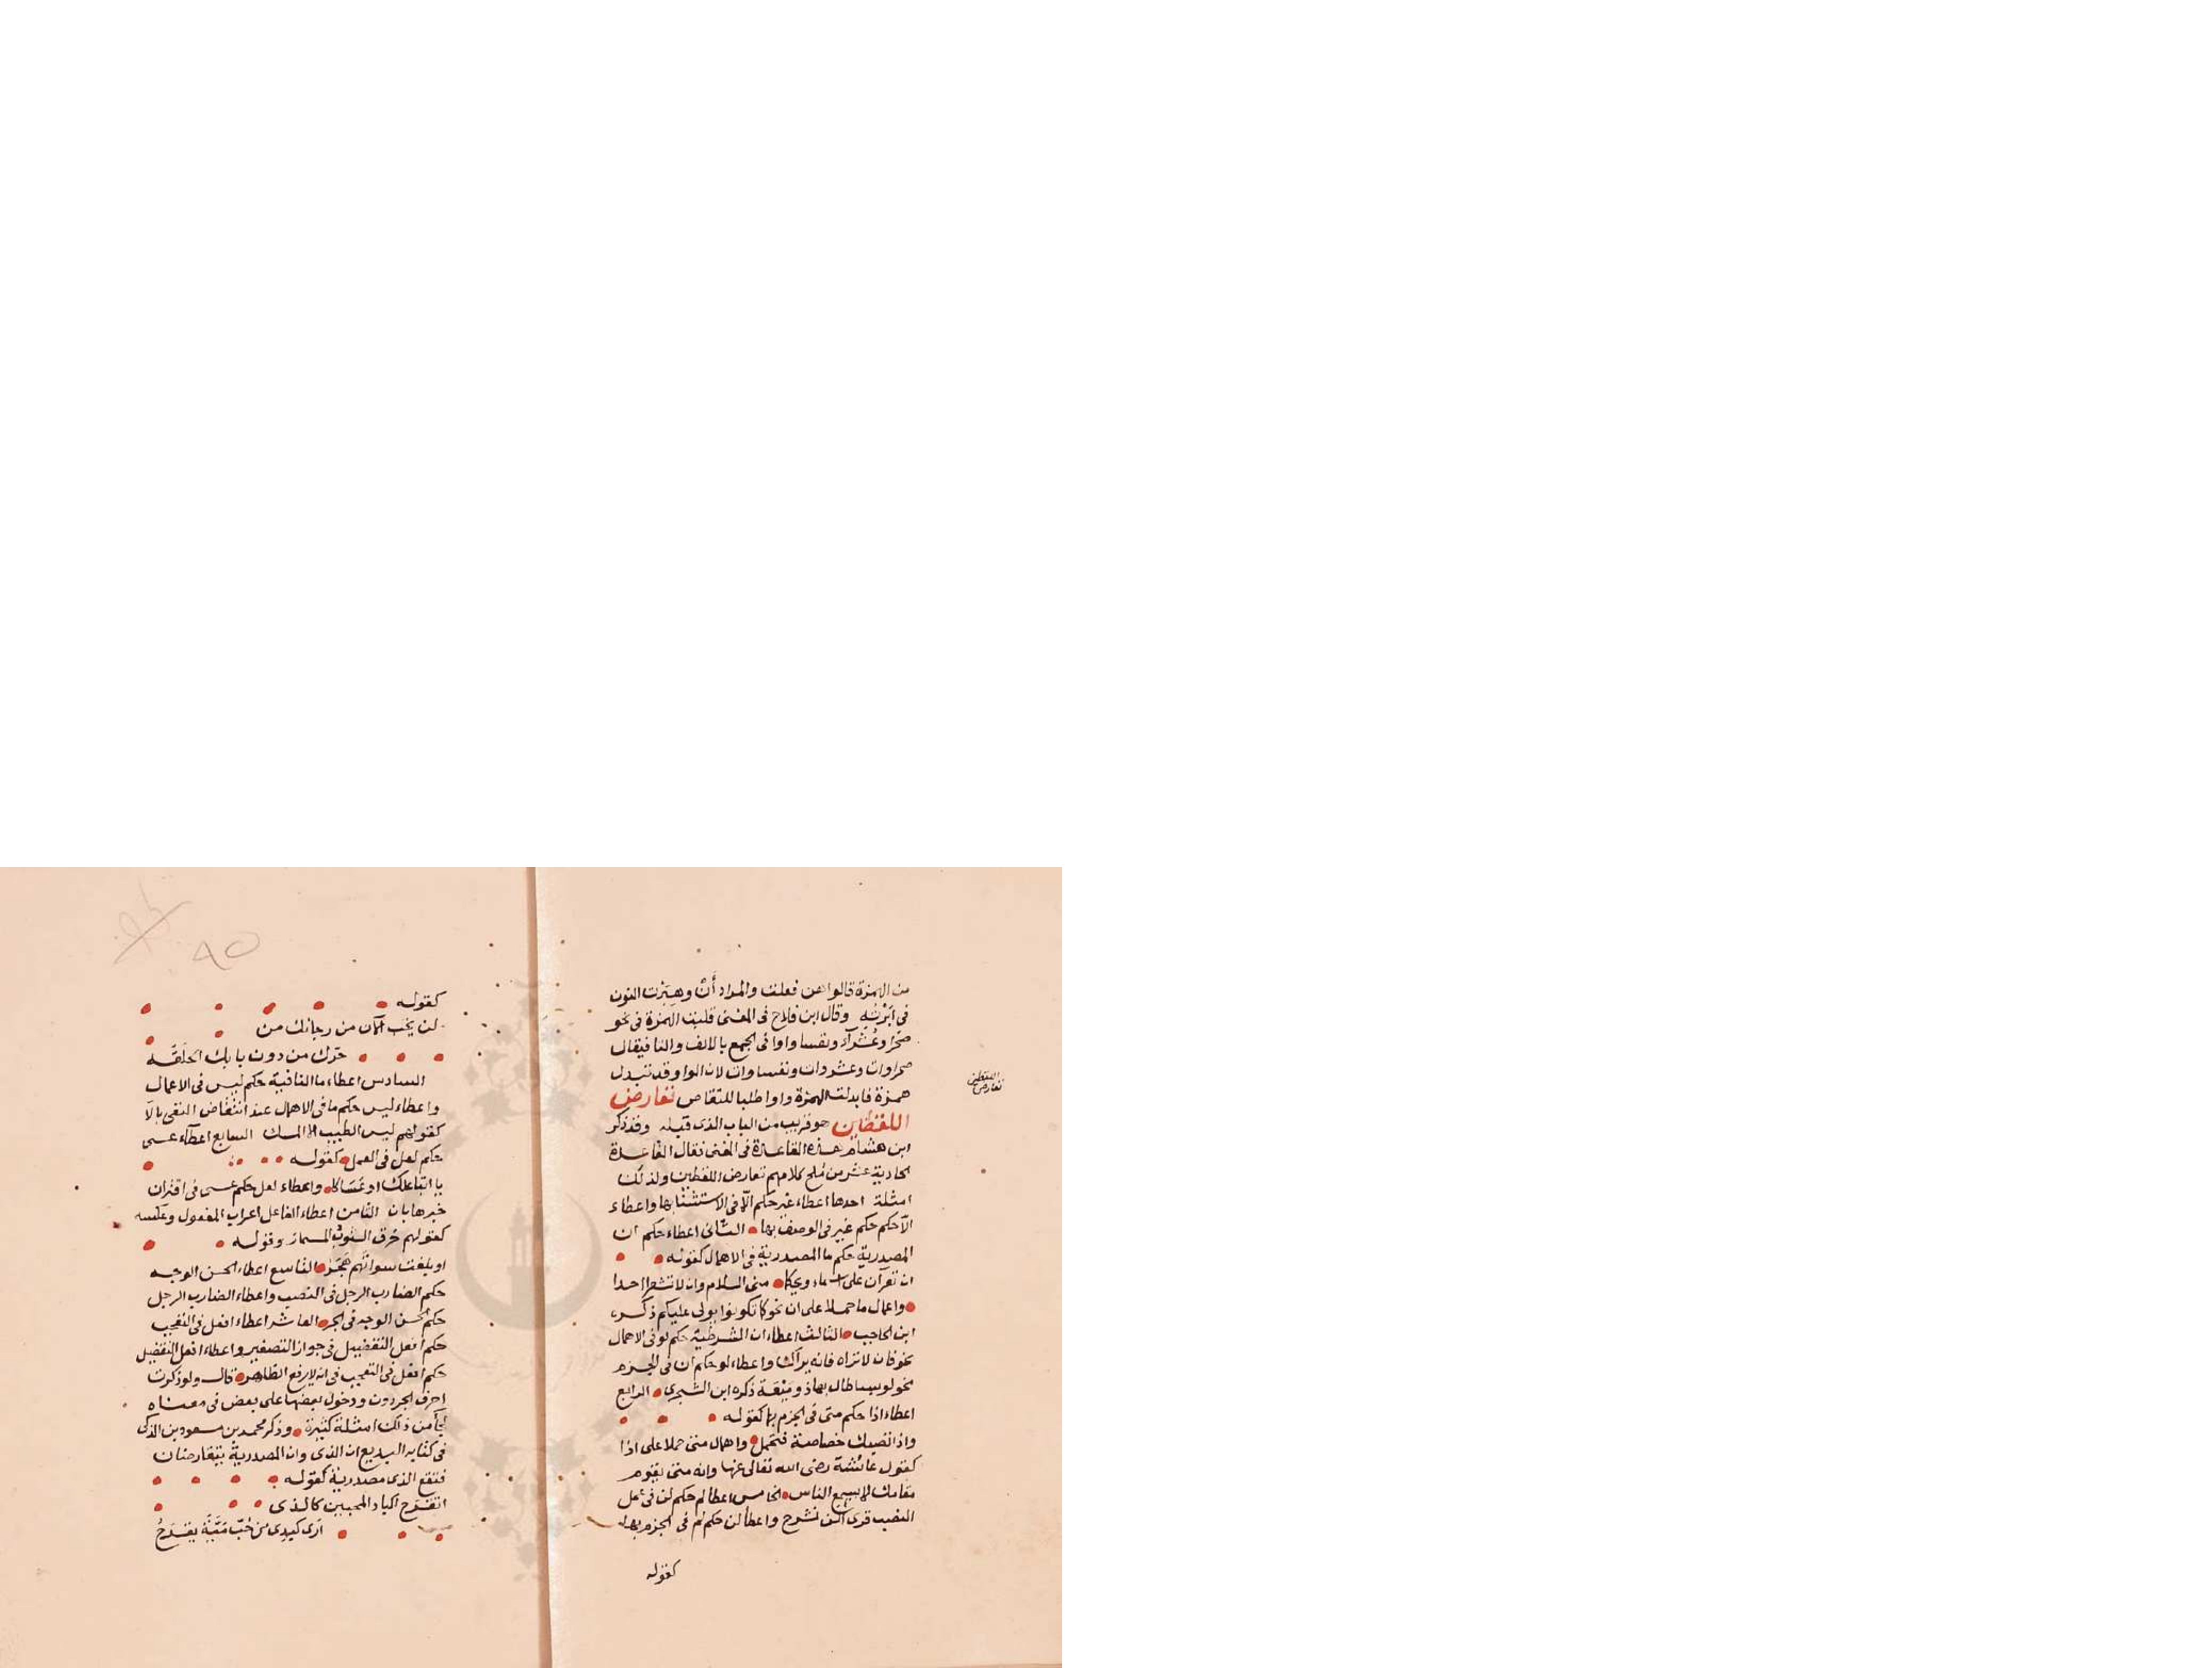 من الهمزة قالوا هن فعلت والمراد أن وهنرت النون
في ابرته وقال ابن فلاح في المغنى قلبت الهمزة في نحو
صحرا وعشرآء ونفسا واوا في الجمع بالالف والتا فيقال
صحراوات وعشروات ونفساوات لان الواو قد تبدل
همزة فابدلت الهمزة واوا طلبا للتقاص تعارض
اللفظان هو قريب من الباب الذى قبله وقد ذكر
ابن هشام هذه القاعدة في المغنى فقال القاعدة
الحادية عشر من ملح كلامهم تعارض اللفظين ولذلك
امثلة احدها اعطاء غير حكم الّا في الاستثنا بها واعطاء
الّا حكم حكم غير في الوصف بها الثانى اعطاء حكم ان
المصدرية حكم ما المصدرية في الاهمال كقوله
ان تقرآن على اسماء ويحكما منى السلام وان لا تشعرا احدا
واعمال ما حملا على ان نحو كما تكونوا يولى عليكم ذكره
ابن الحاجب الثالث اعطاء ان الشرطية حكم لو في الاهمال
نحو فان لا تراه فانه يراك واعطاء لو حكم ان في الجزم
نحو لو يسا طال بها ذو ميعة ذكره ابن الشجرى الرابع
اعطاء اذا حكم متى في الجزم بها كقوله
واذا تصبك خصاصة فتحمل واهمال متى حملا على اذا
كقول عائشة رضى الله تعالى عنها وانه متى يقوم
مقامك لا يسمع الناس الخامس اعطا لم حكم لن في عمل
النصب قرى الن نشرح واعطا لن حكم لم في الجزم بها
كقوله
تعارض اللفظين
كقوله
لن يخب الآن من رجائك من
حرك من دون بابك الحلقه
السادس اعطاء ما النافية حكم ليس في الاعمال
واعطاء ليس حكم ما في الاهمال عند انتقاض النفى بالّا
كقولهم ليس الطيب الا المسك السابع اعطآء عسى
حكم لعل في العمل كقوله
يا ابتا علك او عساكا واعطاء لعل حكم عسى في اقتران
خبرها بان الثامن اعطاء الفاعل اعراب المفعول وعكسه
كقولهم خرق الثوب المسمار وقوله
او بلغت سواتهم هجر التاسع اعطاء الحسن الوجه
حكم الضارب الرجل في النصب واعطاء الضارب الرجل
حكم الحسن الوجه في الجر العاشر اعطاء افعل في التعجب
حكم افعل التفضيل في جواز التصغير واعطاء افعل التفضيل
حكم افعل في التعجب في انه لا يرفع الظاهر قال ولو ذكرت
احرف الجر ودخول بعضها على بعض في معناه
لجأ من ذلك امثلة كثيرة وذكر محمد بن مسعود بن الذكى
في كتابه البديع ان الذى وان المصدرية يتقارضان
فتقع الذى مصدرية كقوله
اتقرح اكباد المحبين كالذى
ارى كبدى من حب مية يقرح